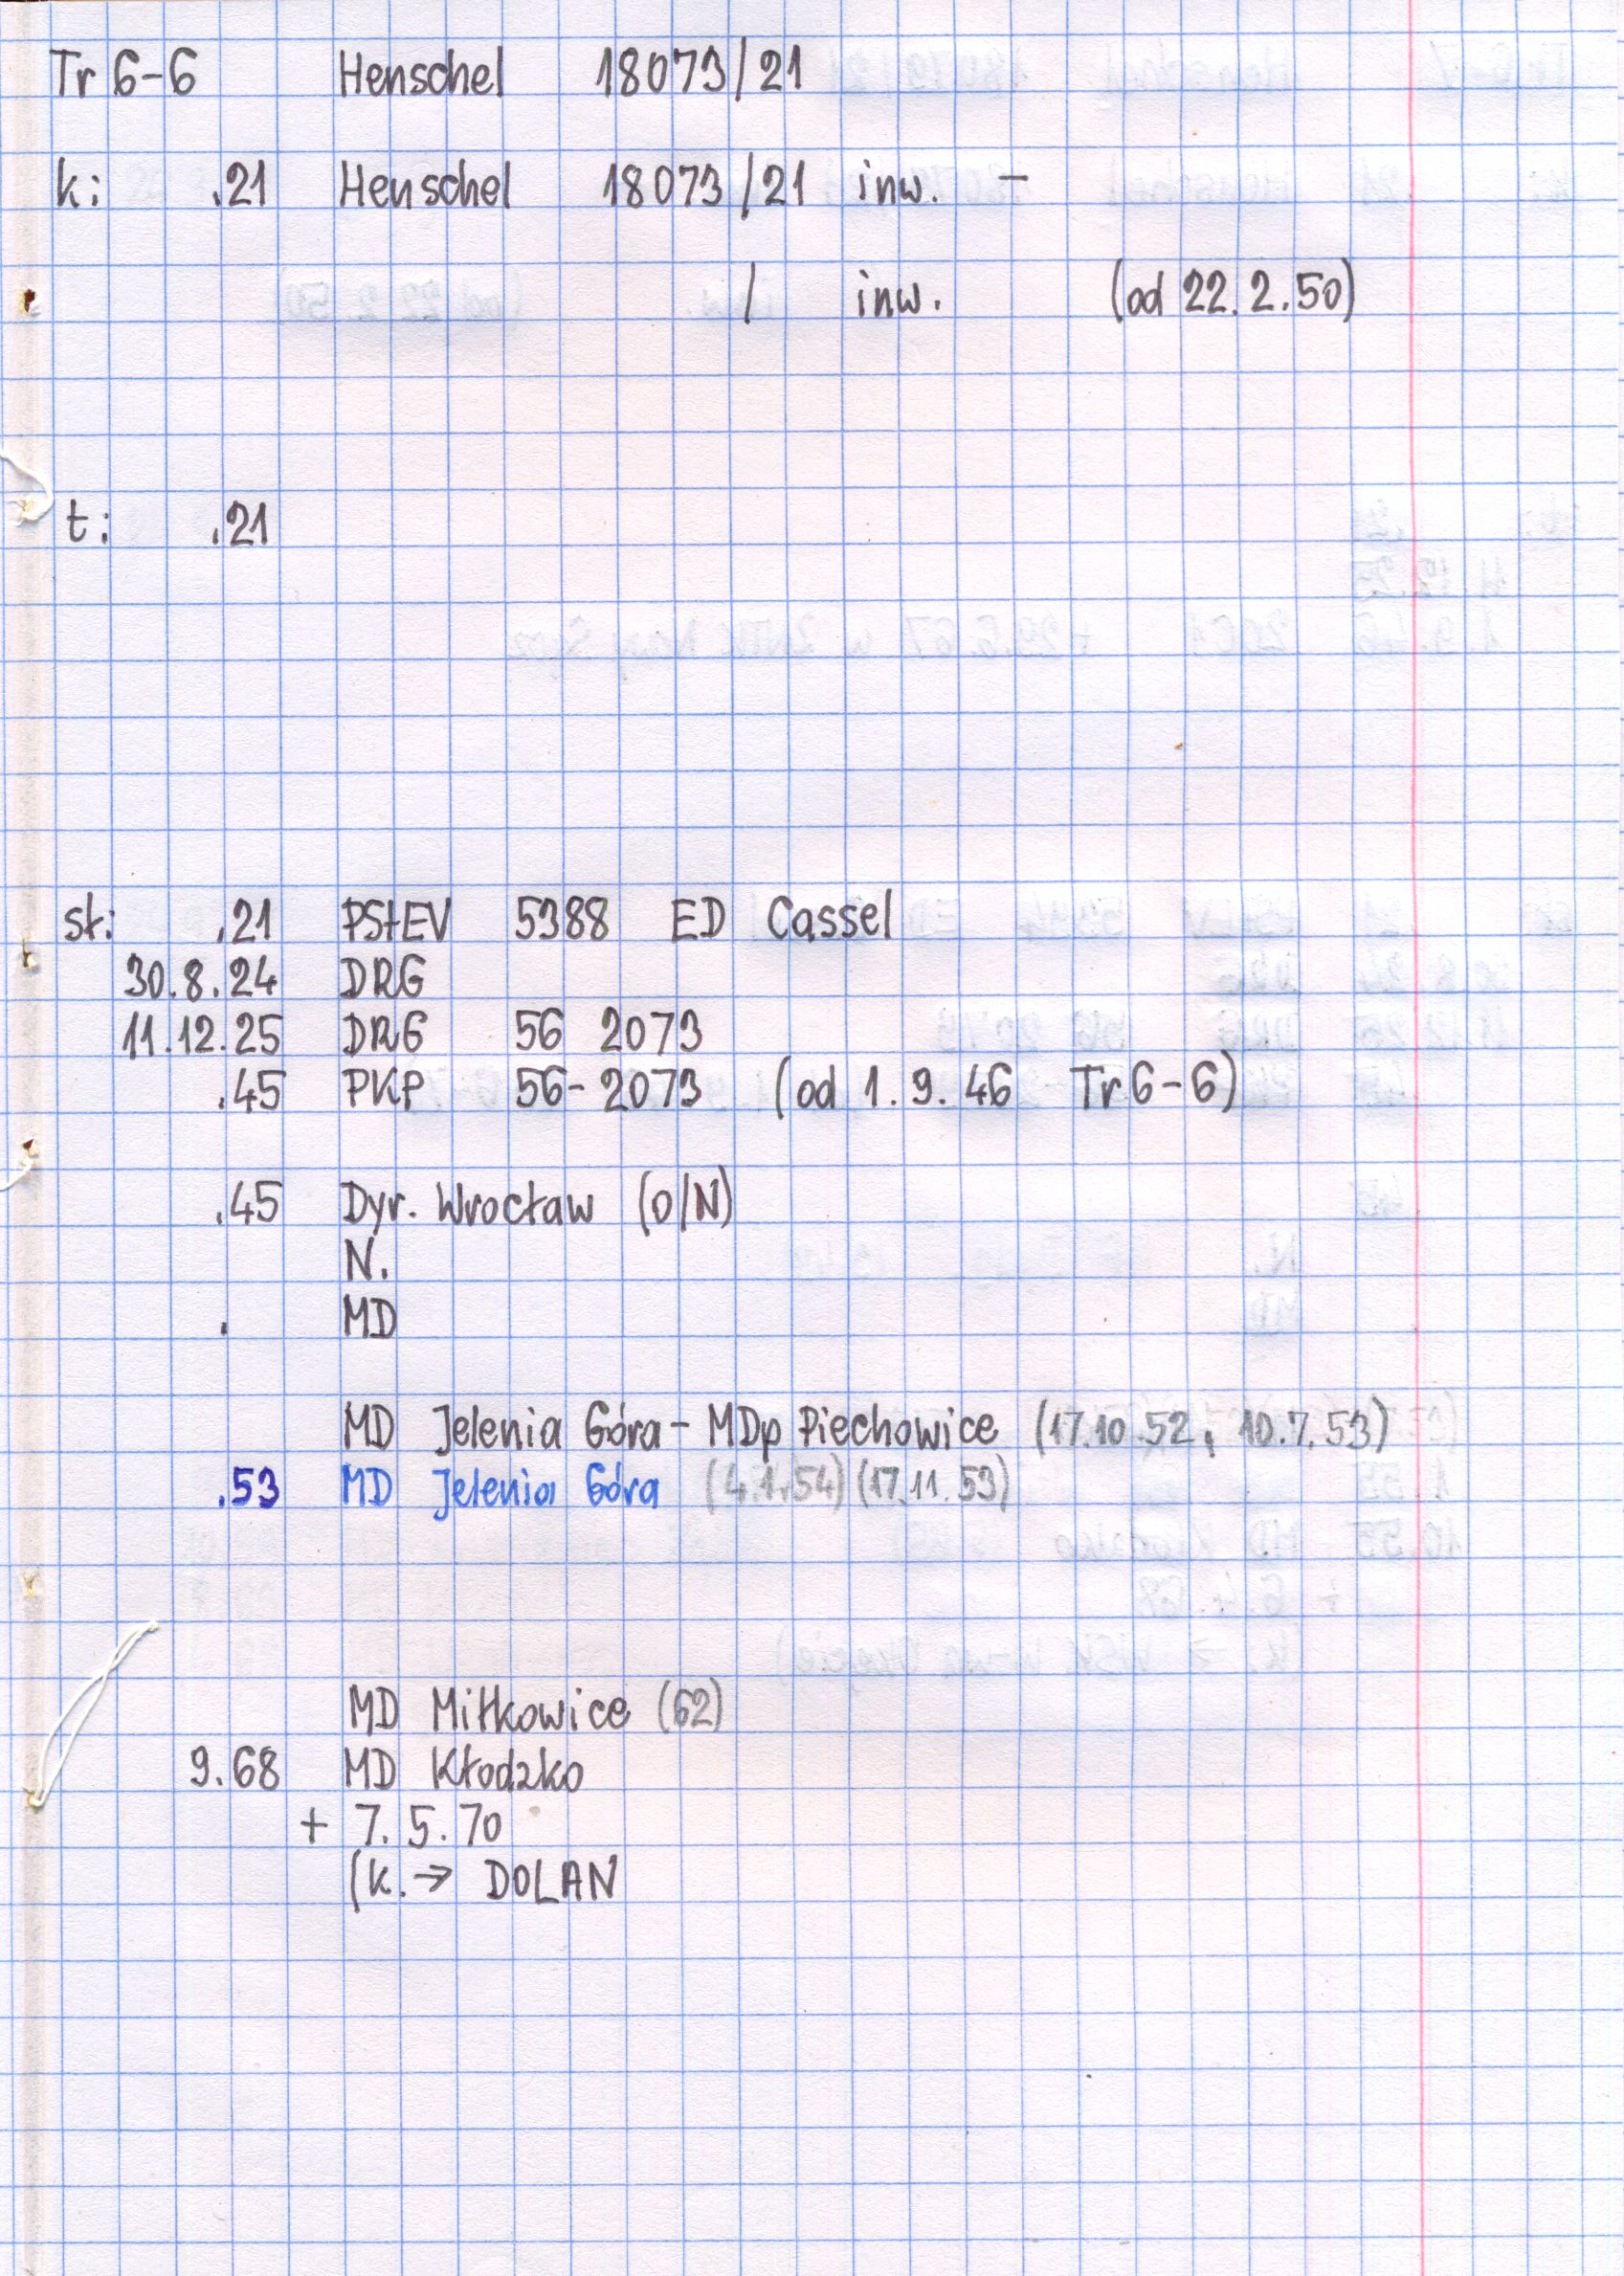 Tr 6-6 Henschel 18073/21
k: .21 Henschel 18073/21 inw. –
/ inw. (od 22.2.50)
t: .21
st: .21 PStEV 5388 ED Cassel
30.8.24 DRG
11.12.25 DRG 56 2073
.45 PKP 56-2073 (od 1.9.46 Tr 6-6)
.45 Dyr. Wrocław (O/N)
N.
. MD
MD Jelenia Góra - MDp Piechowice (17.10.52, 10.7.53)
.53 MD Jelenia Góra (4.1.54) (17.11.53)
MD Miłkowice (62)
9.68 MD Kłodzko
+ 7.5.70
(k. → DOLAN